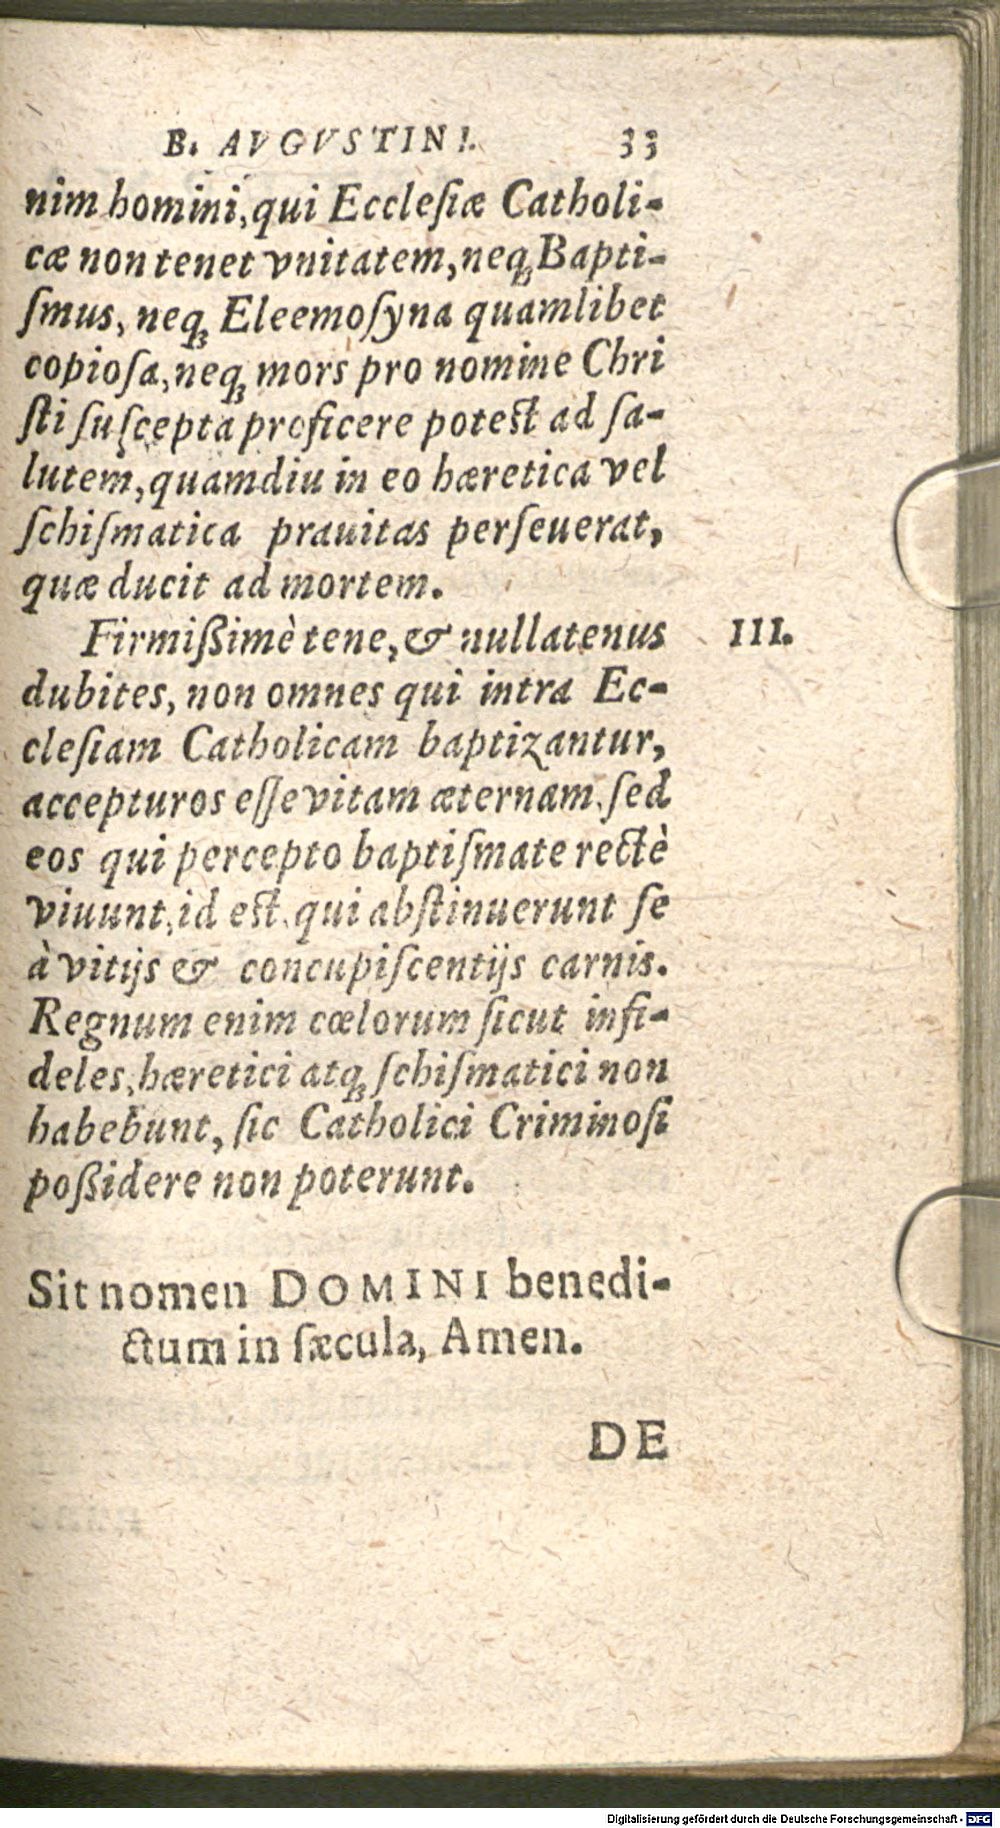 B. AVGVSTINI. 33
nim homini, qui Ecclesiæ Catholi-
cæ non tenet vnitatem, neqꝫ Bapti-
ſmus, neqꝫ Eleemoſyna quamlibet
copioſa, neqꝫ mors pro nomine Chri
ſti ſuſcepta proficere poteſt ad ſa-
lutem, quamdiu in eo hæretica vel
ſchiſmatica prauitas perſeuerat,
quæ ducit ad mortem.
Firmißimè tene, & nullatenus III.
dubites, non omnes qui intra Ec-
cleſiam Catholicam baptizantur,
accepturos eſſe vitam æternam, ſed
eos qui percepto baptiſmate rectè
viuunt, id eſt, qui abſtinuerunt ſe
à vitijs & concupiſcentijs carnis.
Regnum enim cœlorum ſicut infi-
deles, hæretici atqꝫ ſchiſmatici non
habebunt, ſic Catholici Criminoſi
poßidere non poterunt.
Sit nomen DOMINI benedi-
ctum in ſæcula, Amen.
DE
Digitalisierung gefördert durch die Deutsche Forschungsgemeinschaft - DFG